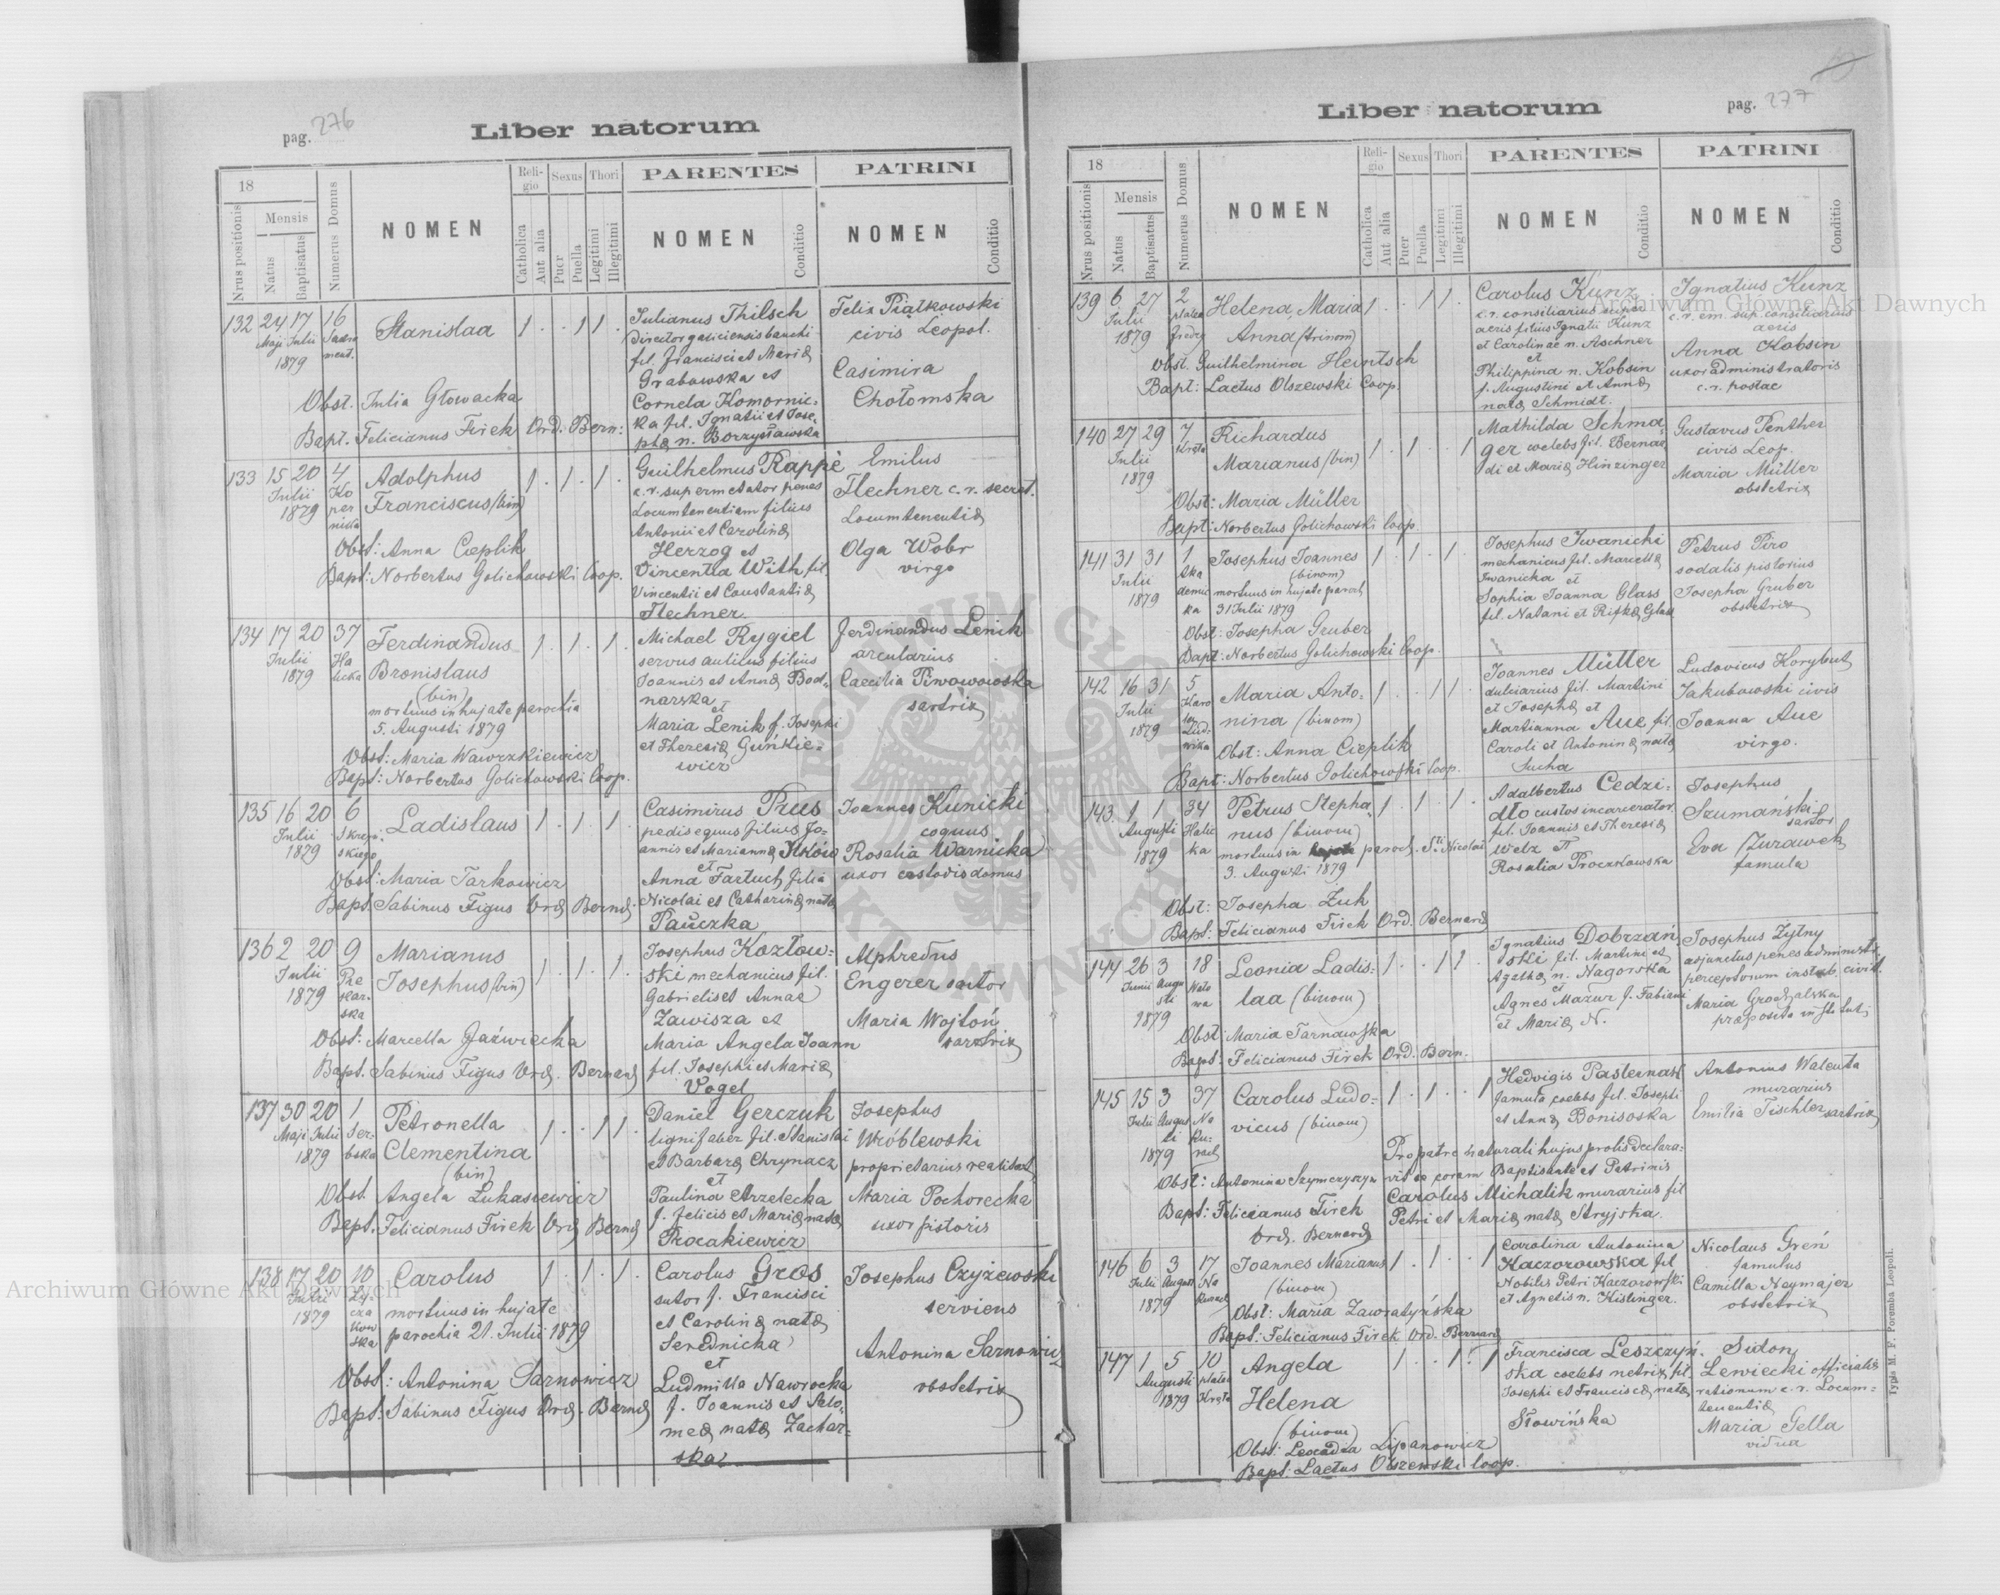 pag. 276
Liber natorum
18
Nrus positionis
Mensis
Natus
Baptisatus
Numerus Domus
NOMEN
Religio
Catholica
Aut alia
Sexus
Puer
Puella
Thori
Legitimi
Illegitimi
PARENTES
NOMEN
Conditio
PATRINI
NOMEN
Conditio
132 24 17 16
Maji Julii
1879
Stanislaa
Obst. Julia Głowacka
Bapt. Felicianus Firek Ord: Bern:
Julianus Thilsch
Director galiciensis bancki
fil. Francisci et Mariæ
Grabowska et
Cornela Komornic-
ka fil. Ignatii et Jose-
phæ n. Borzysławska
Felix Piątkowski
civis Leopol.
Casimira
Chołomska
133 15 20 4
Julii
1879
Ko
per
nicka
Adolphus
Franciscus (bin)
Obst: Anna Cieplik
Bapt: Norbertus Golichowski Coop.
Guilhelmus Rappé
c. r. supermetator penes
Locumtenentiam filius
Antonii et Carolinæ
Herzog et
Vincentia With fil.
Vincentii et Constantiæ
Flechner
Emilus
Flechner c. r. secret.
Locumtenentiæ
Olga Wobr
virgo
134 17 20 37
Julii
1879
Ha
licka
Ferdinandus
Bronislaus
(bin)
mortuus in hujate parochia
5. Augusti 1879
Obst: Maria Wawrzkiewicz
Bapt: Norbertus Golichowski Coop.
Michael Rygiel
servus aulicus filius
Joannis et Annæ Bod-
narska
et
Maria Lenik f. Josephi
et Theresiæ Guńkie-
wicz
Ferdinandus Lenik
arcularius
Caecilia Piwowowska
sartrix
135 16 20 6
Julii
1879
Ladislaus
Obst: Maria Tarkowicz
Bapt. Sabinus Figus Ord Bernd
Casimirus Prus
pedisequus filius Jo-
annis et Mariannæ Ilków
et
Anna Fartuch filia
Nicolai et Catharinæ natæ
Pauczka
Joannes Kunicki
coquus
Rosalia Warnicka
uxor custodis domus
136 2 20 9
Julii
1879
Pie
kar-
ska
Marianus
Josephus (bin)
Obst: Marcella Jaźwiecka
Bapt. Sabinus Figus Ord. Bernard
Josephus Kozłow-
ski mechanicus fil.
Gabrielis et Annae
Zawisza et
Maria Angela Joann
fil. Josephi et Mariæ
Vogel
Alphredus
Engerer sartor
Maria Wojtoń
sartrix
137 30 20 1
Maji Julii
1879
Ser-
bska
Petronella
Clementina
(bin)
Obst. Angela Łukasiewicz
Bapt. Felicianus Firek Ord Bernd
Daniel Gerczuk
lignifaber fil. Stanislai
et Barbaræ Chrynacz
et
Paulina Strzelecka
f. Felicis et Mariæ natæ
Procakiewicz
Josephus
Wróblewski
proprietarius realitat.
Maria Pochorecka
uxor pistoris
138 17 20 10
Julii
1879
Ły-
cza
kow
ska
Carolus
mortuus in hujate
parochia 21. Julii 1879
Obst: Antonina Sarnowicz
Bapt: Sabinus Figus Ord. Bernd
Carolus Gros
sutor f. Francisci
et Carolinæ natæ
Serednicka
et
Ludmilla Nawrocka
f. Joannis et Salo-
meæ natæ Zachar-
ska
Josephus Czyżewski
serviens
Antonina Sarnowicz
obstetrix
pag. 277
Liber natorum
18
Nrus positionis
Mensis
Natus
Baptisatus
Numerus Domus
NOMEN
Religio
Catholica
Aut alia
Sexus
Puer
Puella
Thori
Legitimi
Illegitimi
PARENTES
NOMEN
Conditio
PATRINI
NOMEN
Conditio
139 6 27 2
Julii
1879
platea
Fredry
Helena, Maria
Anna (trinom)
Obst. Guilhelmina Heintsch
Bapt: Laetus Olszewski Coop.
Carolus Kunz
c. r. consiliarius super
aeris filius Ignatii Kunz
et Carolinae n. Aschner
et
Philippina n. Kobsin
f. Augustini et Annæ
natæ Schmidt.
Ignatius Kunz
c. r. em. sup. consiliarius
aeris
Anna Kobsin
uxor administratoris
c. r. postae
140 27 29 7
Julii
1879
Kręta
Richardus
Marianus (bin)
Obst: Maria Müller
Bapt: Norbertus Golichowski Coop
Mathilda Schma-
ger coelebs fil. Bernar
di et Mariæ Hinzinger
Gustavus Penther
civis Leop.
Maria Müller
obstetrix
141 31 31 1
Julii
1879
Aka
demic
ka
Josephus Joannes
(binom)
mortuus in hujate paroch
31 Julii 1879
Obst: Josepha Gruber
Bapt: Norbertus Golichowski Coop.
Josephus Iwanicki
mechanicus fil. Marcellæ
Iwanicka et
Sophia Joanna Glass
fil. Natani et Rifkæ Glass
Petrus Piro
sodalis pistorius
Josepha Gruber
obstetrix
142 16 31 5
Julii
1879
Karo
la
Lud-
wika
Maria Anto-
nina (binom)
Obst: Anna Cieplik
Bapt: Norbertus Golichowski Coop.
Joannes Müller
dulciarius fil. Martini
et Josephæ et
Martianna Aue fil.
Caroli et Antoninæ natæ
Sucha
Ludovicus Korybut
Jakubowski civis
Joanna Aue
virgo.
143 1 1 34
Augusti
1879
Halic
ka
Petrus Stepha-
nus (binom)
mortuus in paroch. Sti. Nicolai
3. Augusti 1879
Obst: Josepha Żuk
Bapt: Felicianus Firek Ord. Bernard
Adalbertus Cedzi-
dło custos incarcerator.
fil. Joannis et Theresiæ
Welz et
Rosalia Procakowska
Josephus
Szumański
sartor
Eva Żurawek
famula
144 26 3 18
Junii Augu
sti
1879
Wało
wa
Leonia Ladis-
laa (binom)
Obst: Maria Tarnawska
Bapt: Felicianus Firek Ord. Bern.
Ignatius Dobrzań
ski fil. Martini et
Agatæ n. Nagorska
et
Agnes Mazur f. Fabiani
et Mariæ N.
Josephus Żytny
adjunctus penes administr.
perceptorum instit. civit.
Maria Grodzalska
præposita instituti
145 15 3 37
Julii Augus
ti
1879
Na
Ru-
rach
Carolus Ludo-
vicus (binom)
Obst: Antonina Szymczyszyn
Bapt: Felicianus Firek
Ord. Bernard
Hedvigis Pasternak
famula coelebs fil. Josephi
et Annæ Bonisoska
Pro patre naturali hujus prolis declara-
vit se coram Baptisante et Patrinis
Carolus Michalik murarius fil
Petri et Mariæ natæ Stryjska.
Antonius Walenta
murarius
Emilia Tischler sartrix
146 6 3 17
Julii August
1879
Na
Rurach
Joannes Marianus
(binom)
Obst: Maria Zawratyńska
Bapt: Felicianus Firek Ord. Bernard
Carolina Antonina
Kaczorowska fil
Nobilis Petri Kaczorowski
et Agnetis n. Kislinger.
Nicolaus Greń
famulus
Camilla Neymajer
obstetrix
147 1 5 10
Augusti
1879
platea
Kręta
Angela
Helena
(binom)
Obst: Leocadia Lipanowicz
Bapt: Laetus Olszewski Coop.
Francisca Leszczyń-
ska coelebs netrix fil.
Josephi et Franciscæ natæ
Słowińska
Sidon
Lewiecki officialis
rationum c. r. Locum-
tenentiæ
Maria Gella
vidua
Typis M. F. Poremba Leopoli.
Archiwum Główne Akt Dawnych
Archiwum Główne Akt Dawnych
ARCHIWUM GŁÓWNE AKT DAWNYCH